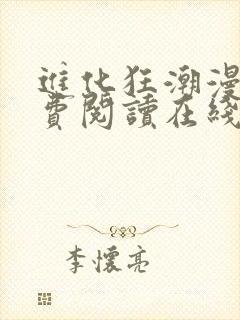 進化狂潮漫
費閱讀在綫
李懷亮